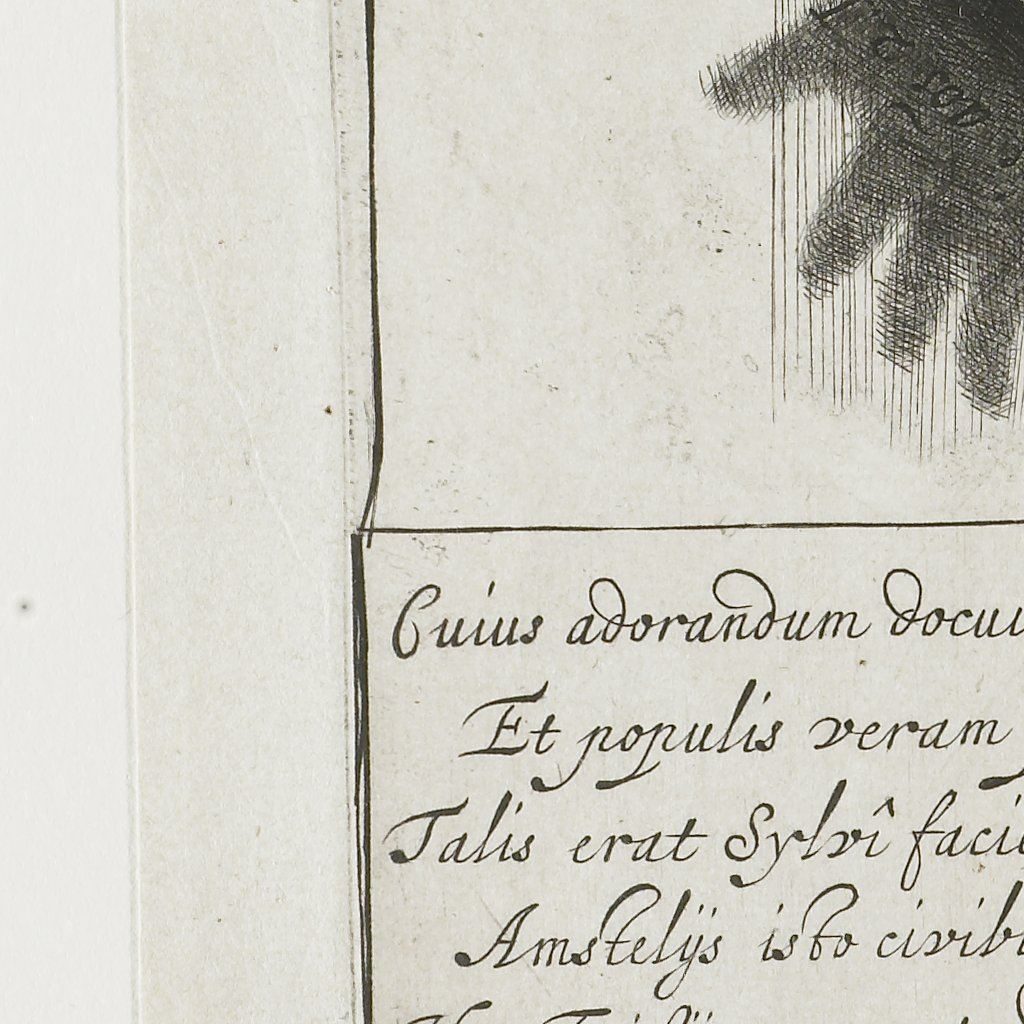 Cuius adorandum docu
Et populis veram
Talis erat Sylvî faci
Amstelijs isto civib